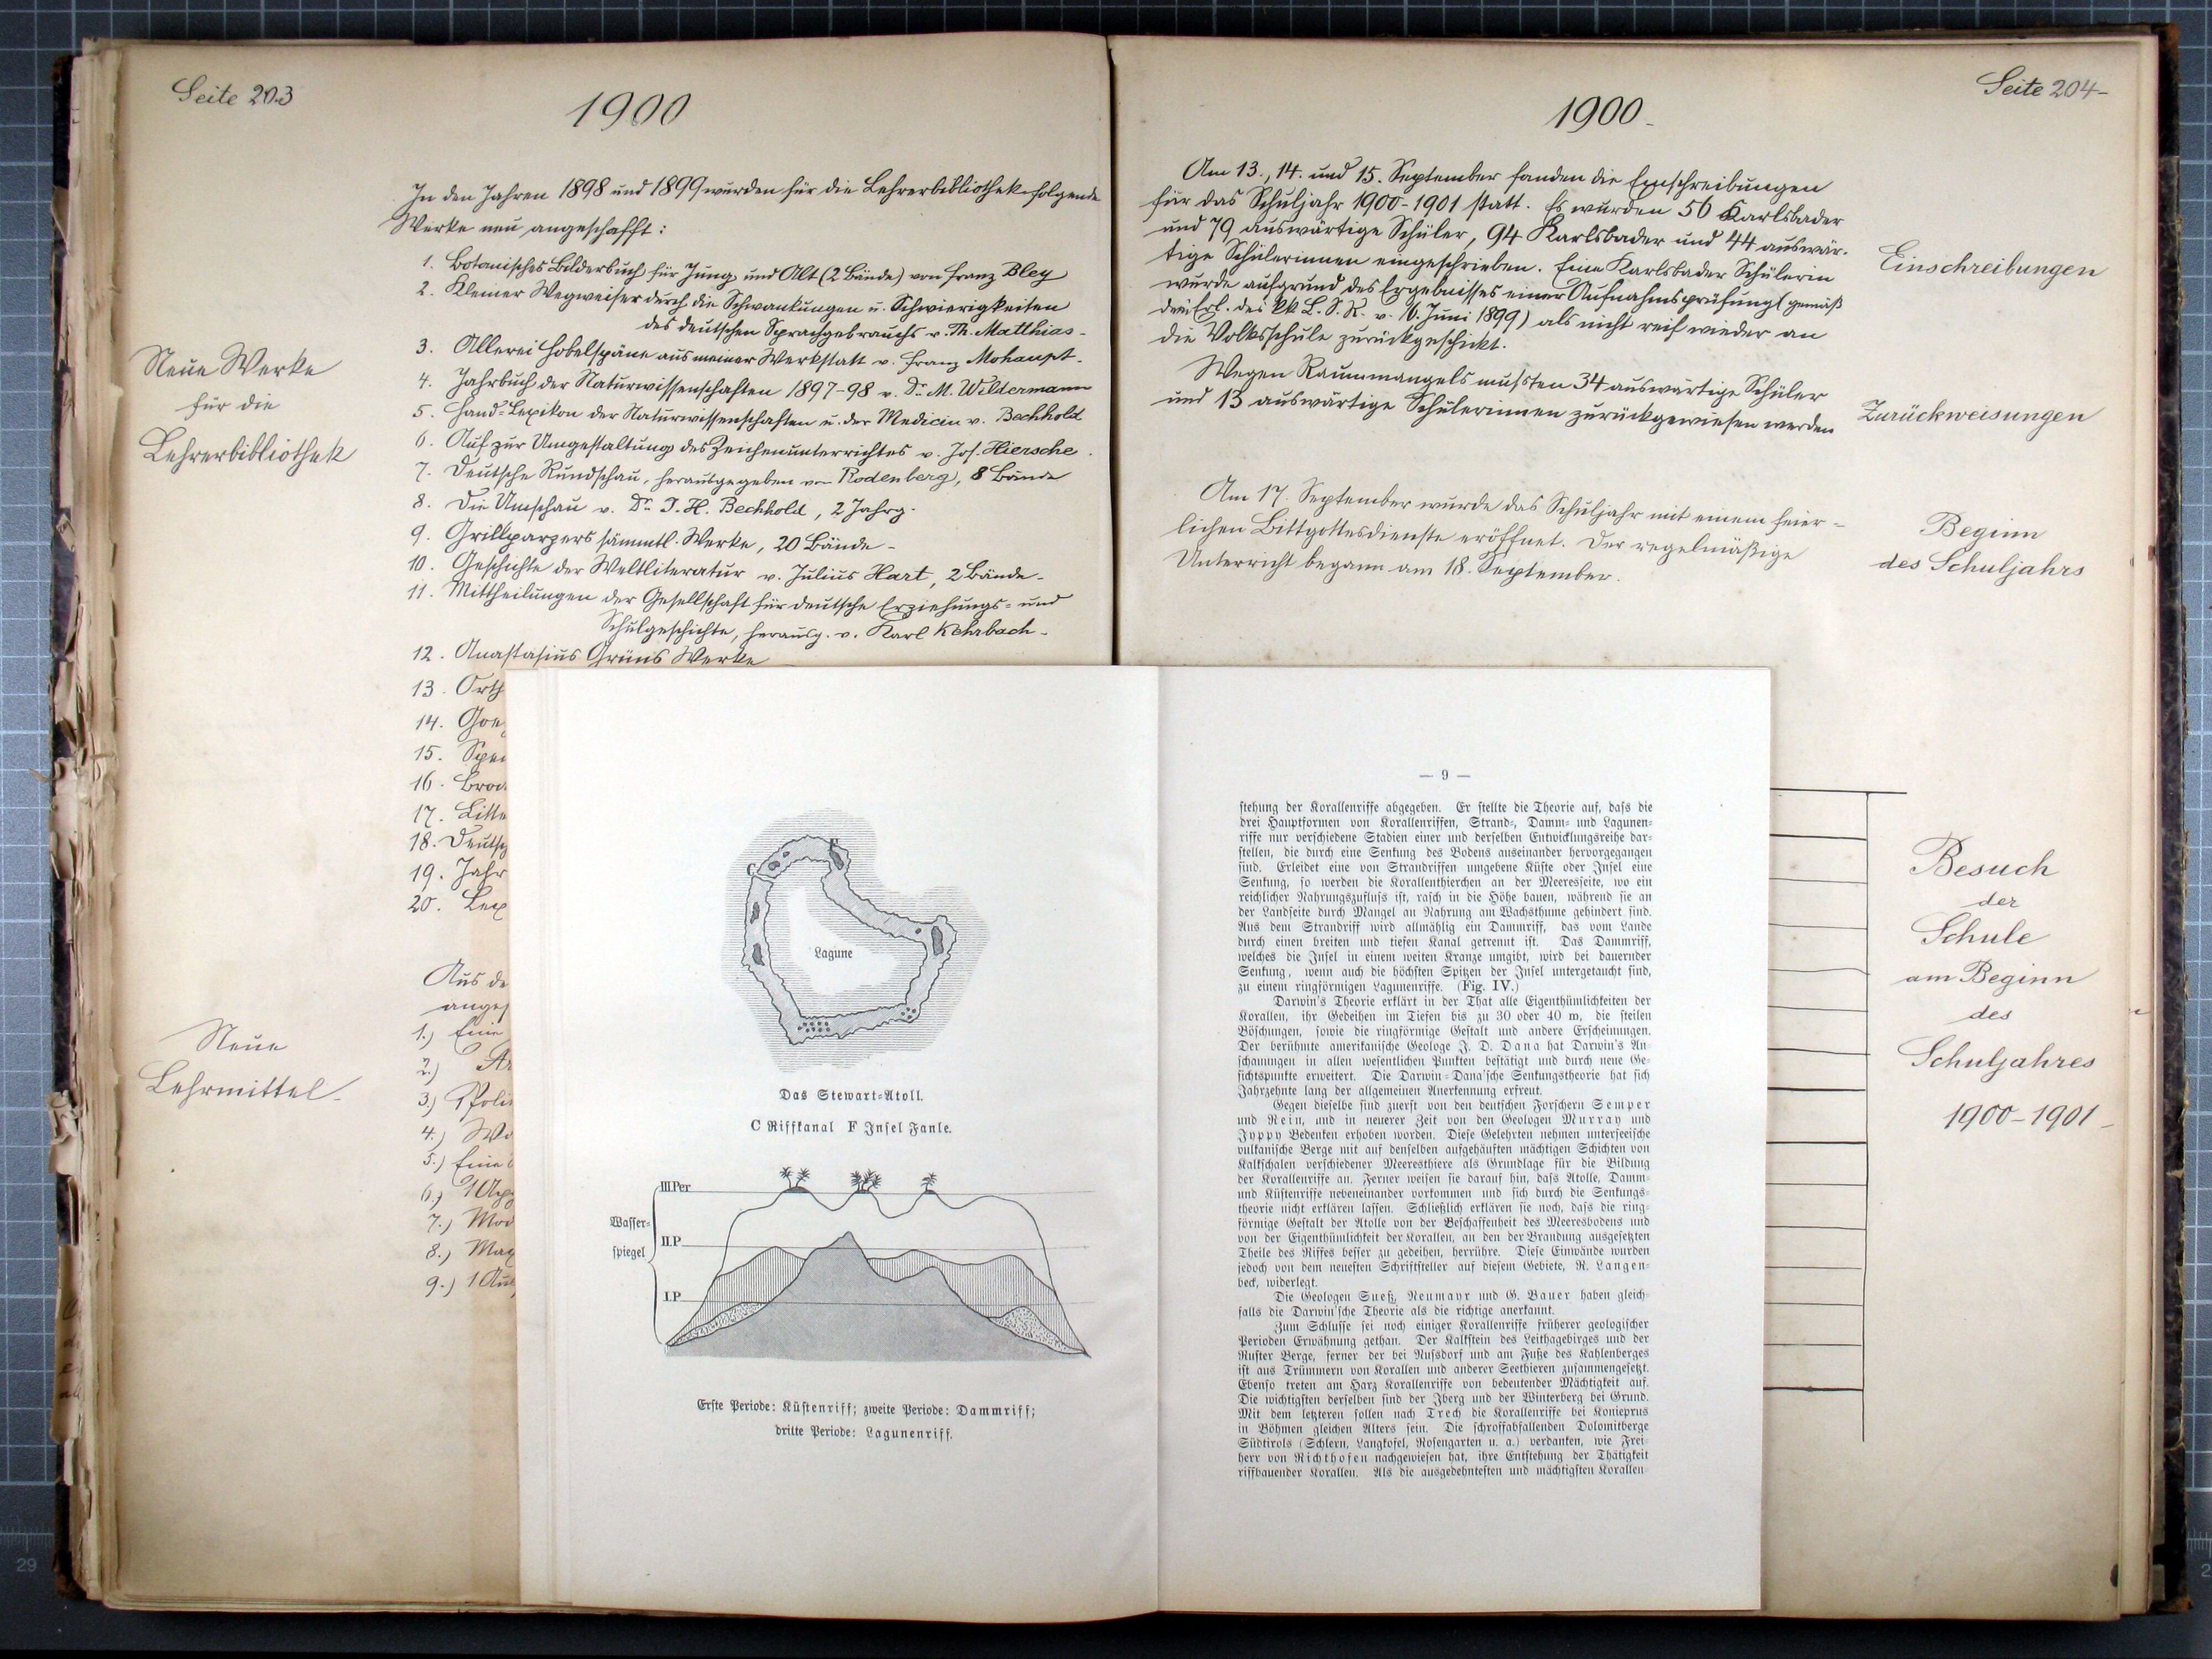 Seite 203
1900
In den Jahren 1898 und 1899 wurden für die Lehrerbibliothek folgende
Werke neu angeschafft:
1. Botanisches Bilderbuch für Jung und Alt (2 Bände) von Franz Bley
2. Kleiner Wegweiser durch die Schwankungen u. Schwierigkeiten
des deutschen Sprachgebrauchs v. Th. Matthias
3. Allerei Hobelspäne aus meiner Werkstatt v. Franz Mohaupt.
4. Jahrbuch der Naturwissenschaften 1897-98 v. Dr. M. Wildermann
5. Hand-Lexikon der Naturwissenschaften u. der Medicin v. Bechhold
6. Auf zur Umgestaltung des Zeichenunterrichtes v. Jos. Hiersche.
7. Deutsche Rundschau, herausgegeben von Rodenberg, 8 Bände
8. Die Umschau v. Dr. J. H. Bechhold, 2 Jahrg.
9. Grillparzers sämmtl. Werke, 20 Bände
10. Geschichte der Weltliteratur v. Julius Hart, 2 Bände
11. Mittheilungen der Gesellschaft für deutsche Erziehungs- und
Schulgeschichte, herausg. v. Karl Kehrbach
12. Anastasius Grüns Werke
13. Orth
14.
15.
16.
17.
18. Deutsch
19. Jahr
20. Lex
Neue Werke
für die
Lehrerbibliothek
Aus de
anges
1.) Eine
2.)
3.)
4.)
5.) Eine
6.)
7.) Mod
8.) Mag
9.)
Neue
Lehrmittel.
Seite 204
1900
Am 13., 14. und 15. September fanden die Einschreibungen
für das Schuljahr 1900-1901 statt. Es wurden 56 Karlsbader
und 79 auswärtige Schüler, 94 Karlsbader und 44 auswär-
tige Schülerinnen eingeschrieben. Eine Karlsbader Schülerin
wurde aufgrund des Ergebnisses einer Aufnahmsprüfung (gemäß
dem Erl. des kk. L. S. R. v. 16. Juni 1899) als nicht reif wieder an
die Volksschule zurückgeschickt.
Wegen Raummangels mußten 34 auswärtige Schüler
und 13 auswärtige Schülerinnen zurückgewiesen werden
Am 17. September wurde das Schuljahr mit einem feier-
lichen Bittgottesdienste eröffnet. Der regelmäßige
Unterricht begann am 18. September.
Einschreibungen
Zurückweisungen
Beginn
des Schuljahrs
Besuch
der
Schule
am Beginn
des
Schuljahres
1900-1901
Lagune
C
F
Das Stewart-Atoll.
C Riffkanal F Insel Fanle.
III.Per
Wasser-
spiegel
II.P
I.P
Erste Periode: Küstenriff; zweite Periode: Dammriff;
dritte Periode: Lagunenriff.
— 9 —
stehung der Korallenriffe abgegeben. Er stellte die Theorie auf, dass die
drei Hauptformen von Korallenriffen, Strand-, Damm- und Lagunen-
riffe nur verschiedene Stadien einer und derselben Entwicklungsreihe dar-
stellen, die durch eine Senkung des Bodens auseinander hervorgegangen
sind. Erleidet eine von Strandriffen umgebene Küste oder Insel eine
Senkung, so werden die Korallenthierchen an der Meeresseite, wo ein
reichlicher Nahrungszufluss ist, rasch in die Höhe bauen, während sie an
der Landseite durch Mangel an Nahrung am Wachsthume gehindert sind.
Aus dem Strandriff wird allmählig ein Dammriff, das vom Lande
durch einen breiten und tiefen Kanal getrennt ist. Das Dammriff,
welches die Insel in einem weiten Kranze umgibt, wird bei dauernder
Senkung, wenn auch die höchsten Spitzen der Insel untergetaucht sind,
zu einem ringförmigen Lagunenriffe. (Fig. IV.)
Darwin's Theorie erklärt in der That alle Eigenthümlichkeiten der
Korallen, ihr Gedeihen im Tiefen bis zu 30 oder 40 m, die steilen
Böschungen, sowie die ringförmige Gestalt und andere Erscheinungen.
Der berühmte amerikanische Geologe J. D. Dana hat Darwin's An-
schauungen in allen wesentlichen Punkten bestätigt und durch neue Ge-
sichtspunkte erweitert. Die Darwin-Dana'sche Senkungstheorie hat sich
Jahrzehnte lang der allgemeinen Anerkennung erfreut.
Gegen dieselbe sind zuerst von den deutschen Forschern Semper
und Rein, und in neuerer Zeit von den Geologen Murray und
Jyppy Bedenken erhoben worden. Diese Gelehrten nehmen unterseeische
vulkanische Berge mit auf denselben aufgehäuften mächtigen Schichten von
Kalkschalen verschiedener Meeresthiere als Grundlage für die Bildung
der Korallenriffe an. Ferner weisen sie darauf hin, dass Atolle, Damm-
und Küstenriffe nebeneinander vorkommen und sich durch die Senkungs-
theorie nicht erklären lassen. Schließlich erklären sie noch, dass die ring-
förmige Gestalt der Atolle von der Beschaffenheit des Meeresbodens und
von der Eigenthümlichkeit der Korallen, an den der Brandung ausgesetzten
Theile des Riffes besser zu gedeihen, herrühre. Diese Einwände wurden
jedoch von dem neuesten Schriftsteller auf diesem Gebiete, R. Langen-
beck, widerlegt.
Die Geologen Sueß, Neumayr und G. Bauer haben gleich-
falls die Darwin'sche Theorie als die richtige anerkannt.
Zum Schlusse sei noch einiger Korallenriffe früherer geologischer
Perioden Erwähnung gethan. Der Kalkstein des Leithagebirges und der
Ruster Berge, ferner der bei Nussdorf und am Fuße des Kahlenberges
ist aus Trümmern von Korallen und anderer Seethieren zusammengesetzt.
Ebenso treten am Harz Korallenriffe von bedeutender Mächtigkeit auf.
Die wichtigsten derselben sind der Iberg und der Winterberg bei Grund.
Mit dem letzteren sollen nach Trech die Korallenriffe bei Konieprus
in Böhmen gleichen Alters sein. Die schroffabfallenden Dolomitberge
Südtirols (Schlern, Langkofel, Rosengarten u. a.) verdanken, wie Frei-
herr von Richthofen nachgewiesen hat, ihre Entstehung der Thätigkeit
riffbauender Korallen. Als die ausgedehntesten und mächtigsten Korallen-
29
2